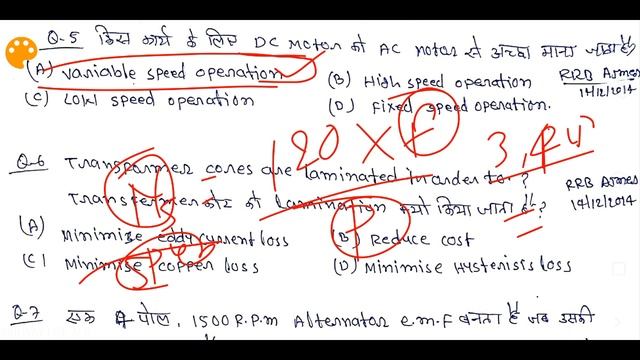 Q-5 किस कार्य के लिए DC Motor को AC motor से अच्छा माना जाता है
(A) variable speed operation
(B) High speed operation
RRB Ajmer
14/12/2014
(C) Low speed operation
(D) Fixed speed operation.
120 X F
3, 4
Q-6 Transformer cores are laminated in order to?
Transformer कोर को lamination क्यों किया जाता है?
RRB Ajmer
14/12/2014
Ns
P
(A) Minimise eddy current loss
(B) Reduce cost
(C) Minimise copper loss
(D) Minimise Hysterisis loss
Q-7 एक 4 पोल, 1500 R.P.m Alternator e.m.F बनता है जब उसकी